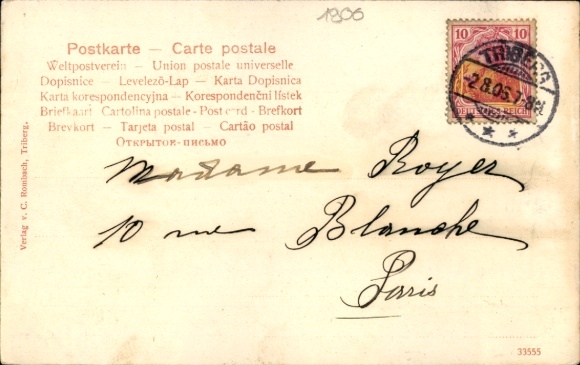 1906
Postkarte — Carte postale
Weltpostverein — Union postale universelle
Dopisnice — Levelező-Lap — Karta Dopisnica
Karta korespondencyjna — Korespondenční lístek
Briefkaart - Cartolina postale - Post card - Brefkort
Brevkort — Tarjeta postal — Cartão postal
Открытое-письмо
10 10
DEUTSCHES REICH
TRIBERG
2.8.06
Madame Royer
10 rue Blanche
Paris
Verlag v. C. Rombach, Triberg.
33555